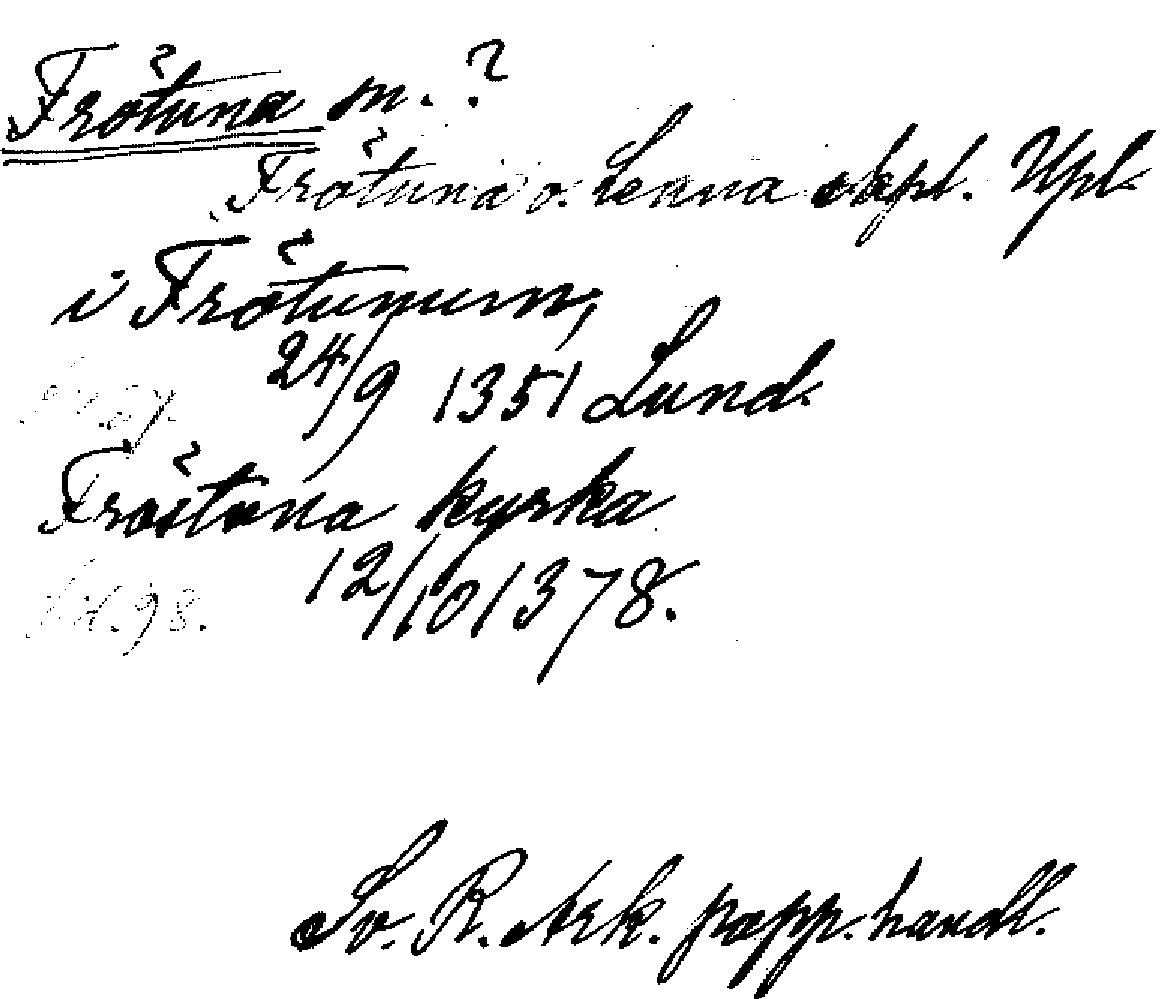 Frötuna sn. ?
Frötuna o. Lenna skpl. Upl.
i Frötunum,
24/9 1351 Lund.
Fröstona kyrka
12/10 1378.
98.
Sv. R. Ark. papp. handl.